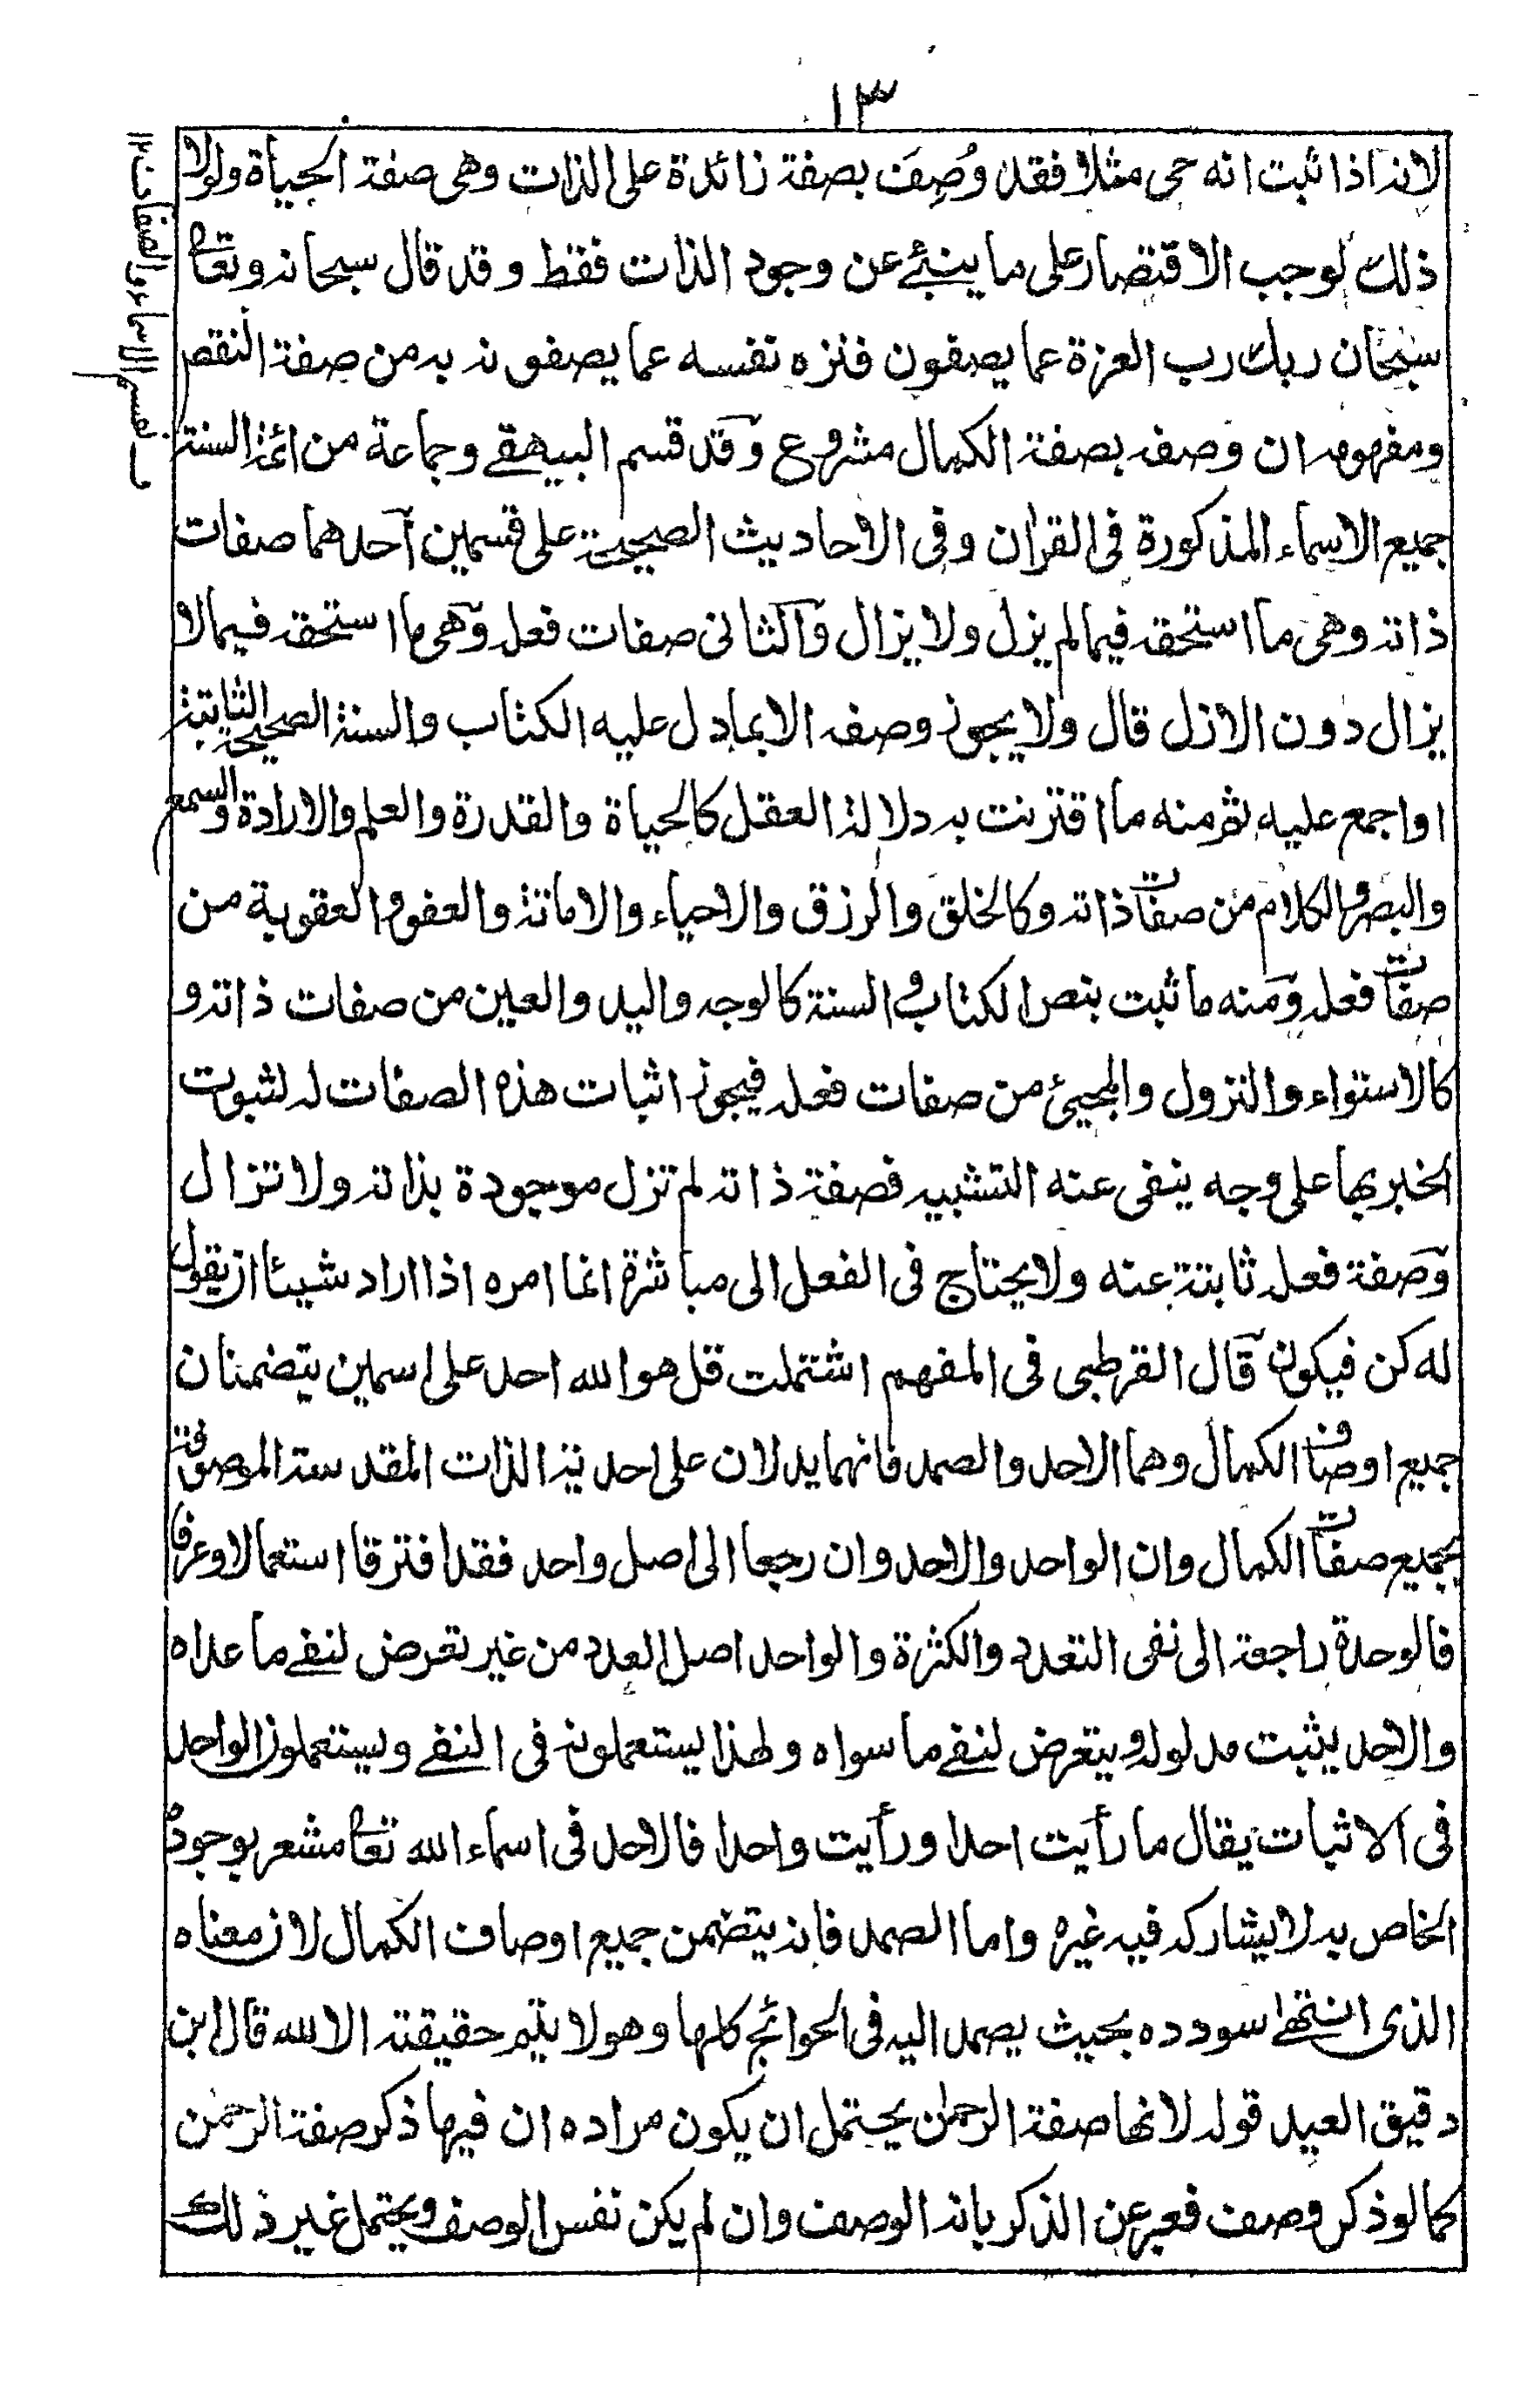 ١٣
لانه اذا ثبت انه حی مثلا فقد وُصِفَ بصفة زائدة علی الذات وهی صفة الحیاة ولولا
ذلك لوجب الاقتصار علی ما ینبئ عن وجود الذات فقط وقد قال سبحانه وتعا
سبحان ربك رب العزة عما یصفون فنزه نفسه عما یصفونه به من صفة النقص
ومفهومه ان وصفه بصفة الكمال مشروع وقد قسم البیهقے وجماعة من ائمة السنة
جمیع الاسماء المذكورة فی القرآن وفی الاحادیث الصحیحة علی قسمین احدهما صفات
ذاته وهی ما استحقه فیما لم یزل ولا یزال والثانی صفات فعله وهی ما استحقه فیما لا
یزال دون الازل قال ولا یجوز وصفه الا بما دل علیه الكتاب والسنة الصحیحة الثابتة
او اجمع علیه ثم منه ما اقترنت به دلالة العقل كالحیاة والقدرة والعلم والارادة والسمع
والبصر والكلام من صفات ذاته وكالخلق والرزق والاحیاء والاماتة والعفو والعقوبة من
صفات فعله ومنه ما ثبت بنص الكتاب والسنة كالوجه والید والعین من صفات ذاته و
كالاستواء والنزول والمجیئ من صفات فعله فیجوز اثبات هذه الصفات له لثبوت
الخبر بها علی وجه ینفی عنه التشبیه فصفة ذاته لم تزل موجودة بذاته ولا تزال
وصفة فعله ثابتة عنه ولا یحتاج فی الفعل الی مباشرة انما امره اذا اراد شیئا ان یقول
له كن فیكون قال القرطبی فی المفهم اشتملت قل هو الله احد علی اسمین یتضمنان
جمیع اوصاف الكمال وهما الاحد والصمد فانهما یدلان علی احدیة الذات المقدسة الموصوفة
بجمیع صفات الكمال وان الواحد والاحد وان رجعا الی اصل واحد فقد افترقا استعمالا وعرفا
فالوحدة راجعة الی نفی التعدد والكثرة والواحد اصل العدد من غیر تعرض لنفے ما عداه
والاحد یثبت مدلوله ویتعرض لنفے ما سواه ولهذا یستعملونه فی النفے ویستعملون الواحد
فی الاثبات یقال ما رأیت احدا ورأیت واحدا فالاحد فی اسماء الله تعا مشعر بوجوده
الخاص به لا یشاركه فیه غیره واما الصمد فانه یتضمن جمیع اوصاف الكمال لان معناه
الذی انتهے سودده بحیث یصمد الیه فی الحوائج كلها وهو لا یتم حقیقته الا لله قال ابن
دقیق العید قوله لانها صفة الرحمٰن یحتمل ان یكون مراده ان فیها ذكر صفة الرحمٰن
كما لو ذكر وصف فعبر عن الذكر بانه الوصف وان لم یكن نفس الوصف ویحتمل غیر ذلك
تقسیم الاسماء والصفات ١٢